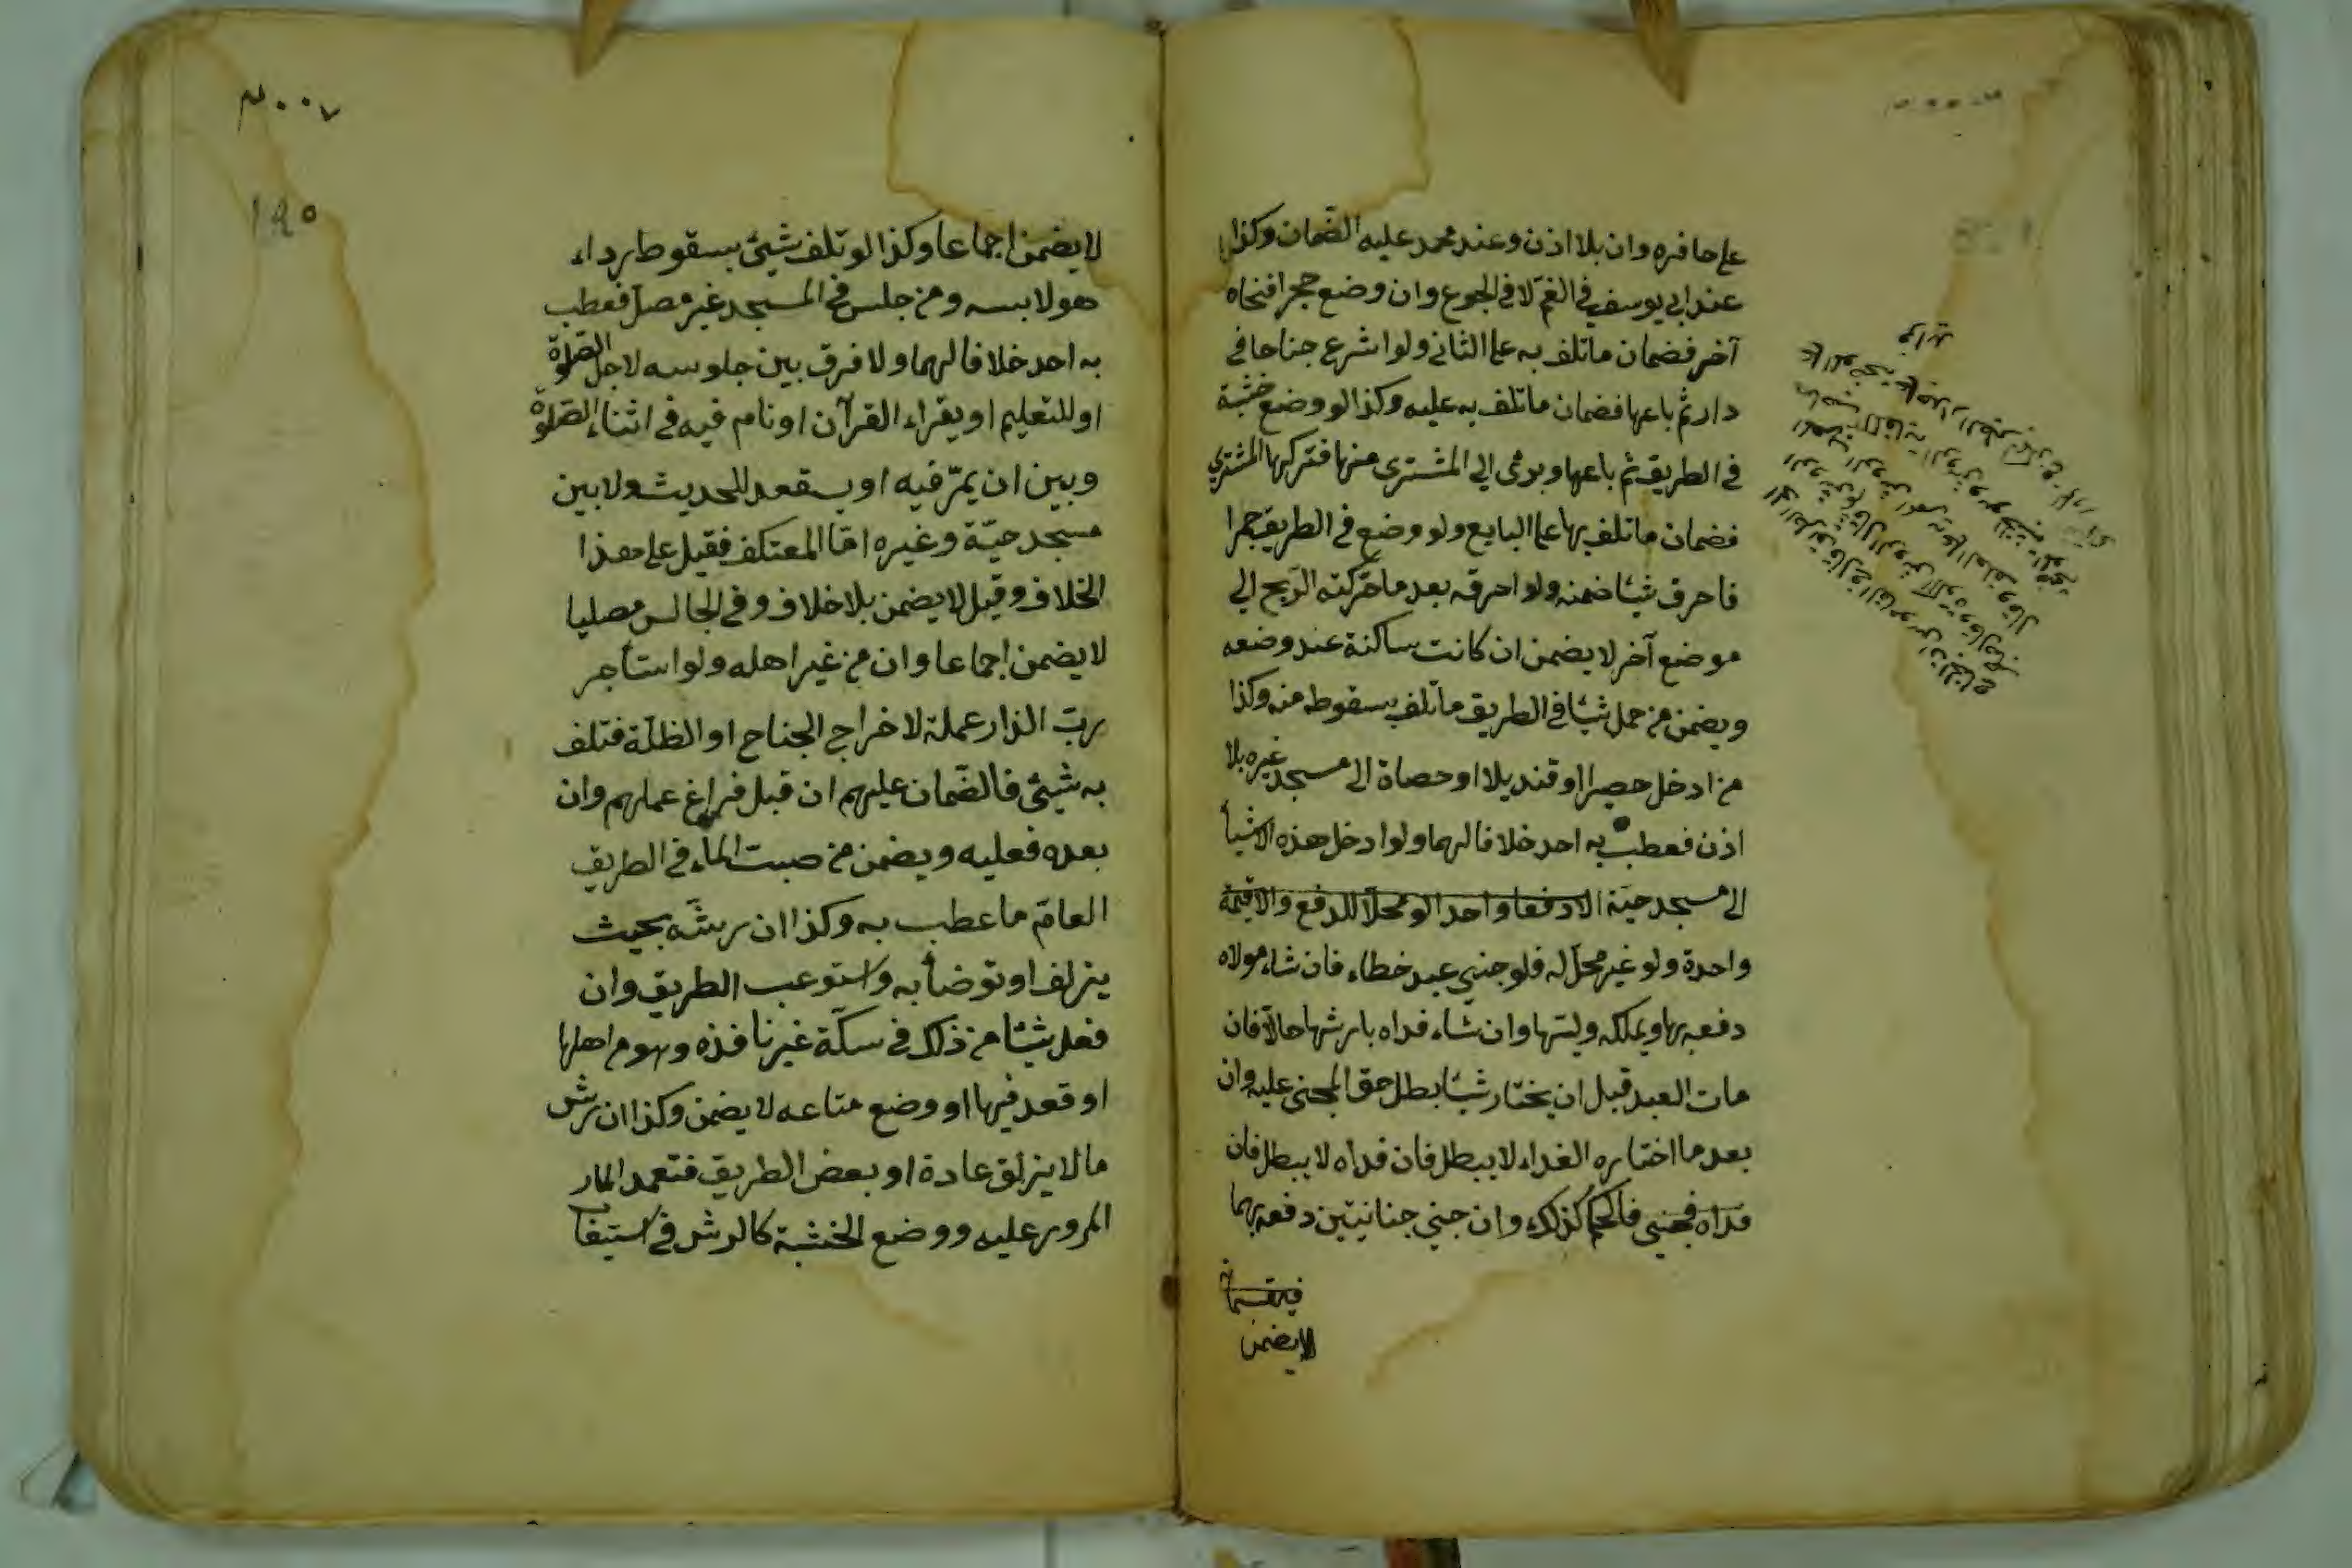 على حافره وان بلا اذن وعند محمد عليه الضمان وكذا
عند ابي يوسف في الغم لا في الجوع وان وضع حجرا فنحاه
آخر فضمان ما تلف به على الثاني ولو اشرع جناحا في
دار ثم باعها فضمان ما تلف به عليه وكذا لو وضع خشبة
في الطريق ثم باعها وبرئ الى المشترى منها فتركها المشتري
فضمان ما تلف بها على البايع ولو وضع في الطريق جمرا
فاحرق شيئا ضمنه ولو احرقه بعد ما حركته الريح الى
موضع آخر لا يضمن ان كانت ساكنة عند وضعه
ويضمن من حمل شيئا في الطريق ما تلف بسقوطه منه وكذا
من ادخل حصيرا او قنديلا او حصاة الى مسجد غيره بلا
اذن فعطب به احد خلافا لهما ولو ادخل هذه الاشيأ
الى مسجد حيّه الا دفعا واحدا لو محلّا للدفع والا قيمة
واحدة ولو غير محلّ له فلو جنى عبد خطاء فان شاء مولاه
دفعه بها ويملكه وليّها وان شاء فداه بارشها حالّا فان
مات العبد قبل ان يختار شيئا بطل حق المجنى عليه وان
بعد ما اختاره الفداء لا يبطل فان فداه لا يبطل فان
فداه فجنى فالحكم كذلك وان جنى جنايتين دفعه بهما
لا يضمن
١٩٥
لا يضمن اجماعا وكذا لو تلف شيئ بسقوط رداء
هو لابسه ومن جلس في المسجد غير مصلّ فعطب
به احد خلافا لهما ولا فرق بين جلوسه لاجل الصلوة
او للتعليم او يقراء القرآن او نام فيه في اثناء الصلوة
وبين ان يمرّ فيه او يقعد للحديث ولا بين
مسجد حيّه وغيره امّا المعتكف فقيل على هذا
الخلاف وقيل لا يضمن بلا خلاف وفي الجالس مصليا
لا يضمن اجماعا وان من غير اهله ولو استأجر
ربّ الدار عملة لاخراج الجناح او الظلّة فتلف
به شيئ فالضمان عليهم ان قبل فراغ عملهم وان
بعده فعليه ويضمن من صبّ الماء في الطريق
العامّ ما عطب به وكذا ان رشّه بحيث
يزلف او توضأ به واستوعب الطريق وان
فعل شيئا من ذلك في سكّة غير نافذه وهو من اهلها
او قعد فيها او وضع متاعه لا يضمن وكذا ان رش
ما لا يزلق عادة او بعض الطريق فتعمد المار
المرور عليه ووضع الخشبة كالرش في استيفا